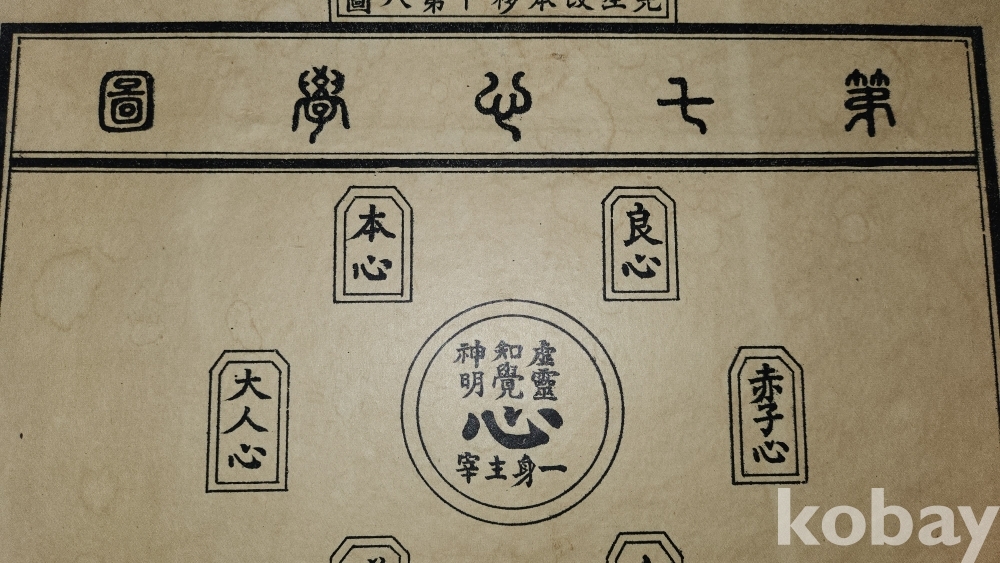 第八圖
第七心學圖
良心
本心
虛靈
知覺
神明
心
一身主宰
赤子心
大人心
kobay